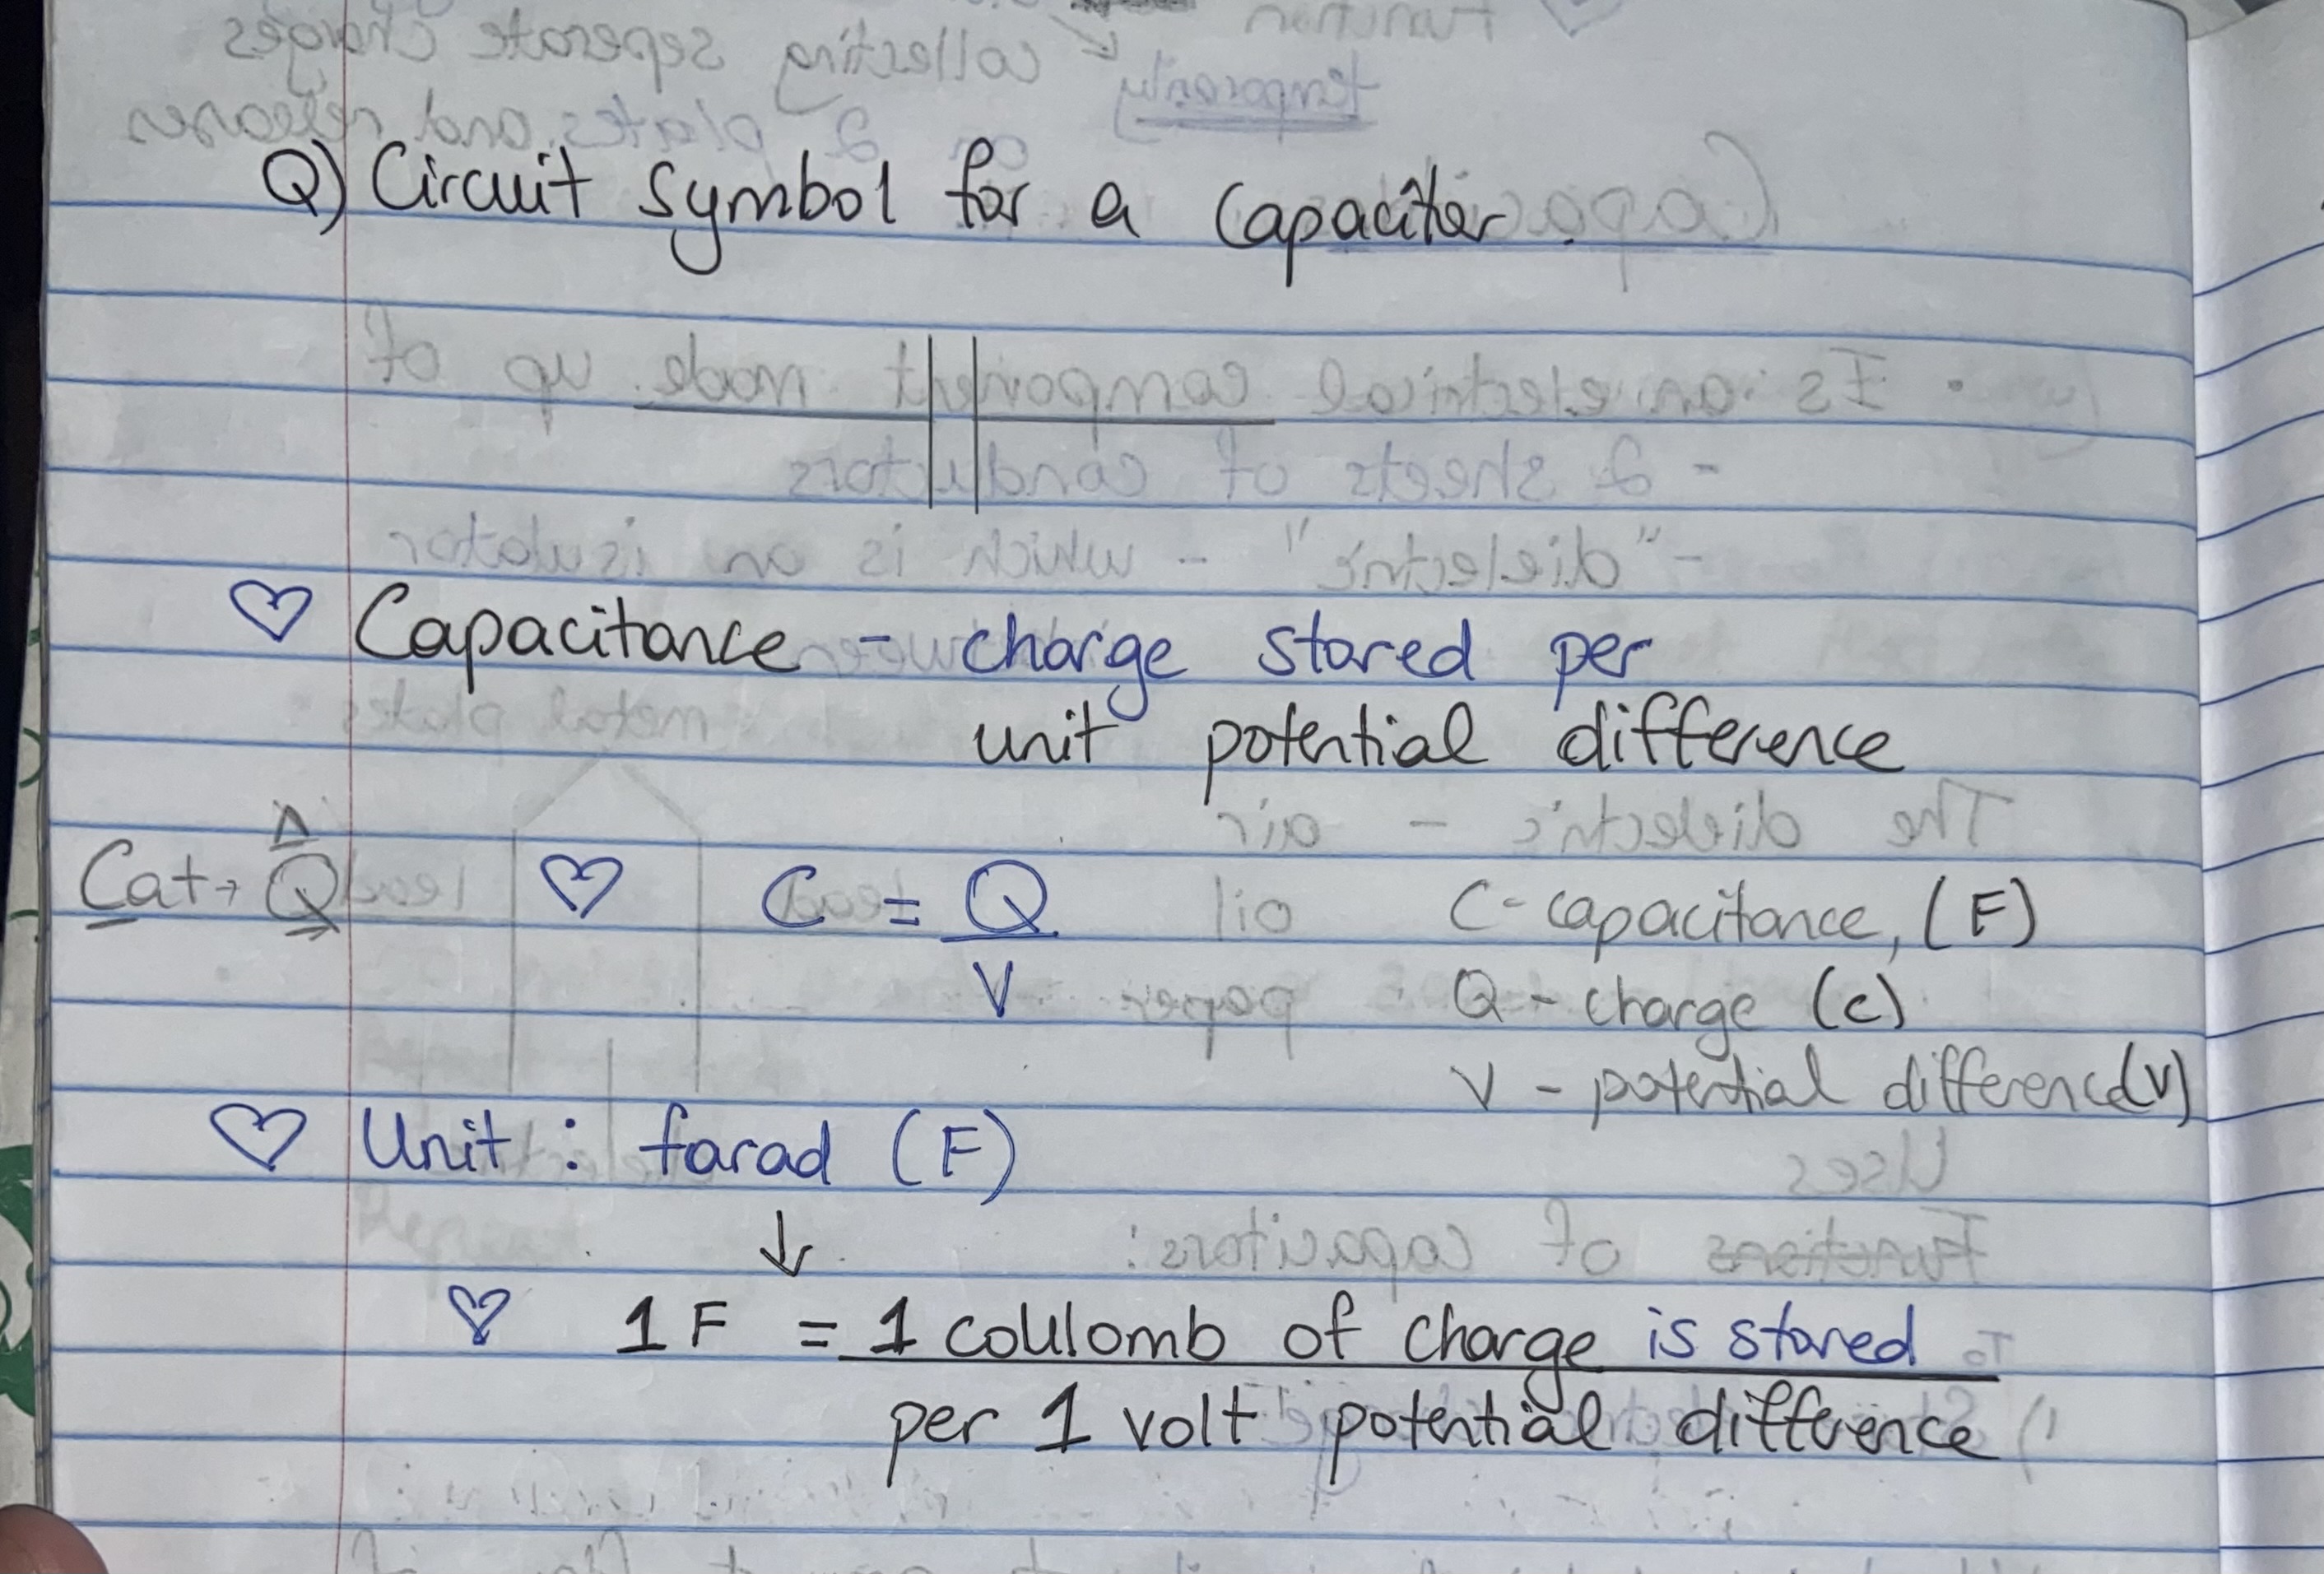 Q) Circuit symbol for a capacitor.
♡ Capacitance - charge stored per
unit potential difference
Cat → Q ♡ C = Q
V
C - capacitance, (F)
Q - charge (c)
V - potential difference (V)
♡ Unit : farad (F)
↓
♡ 1 F = 1 coulomb of charge is stored
per 1 volt potential difference